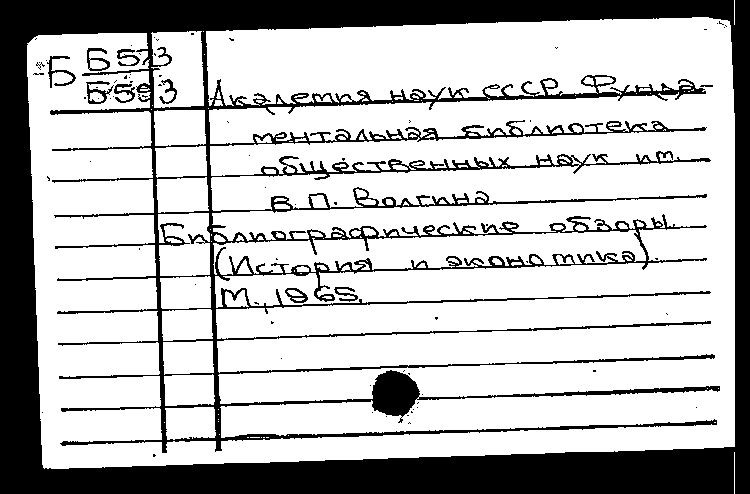 Б Б573
Б593
Академия наук СССР. Фунда-
ментальная библиотека
общественных наук им.
В.П. Волгина.
Библиографические обзоры.
(История и экономика).
М., 1965.